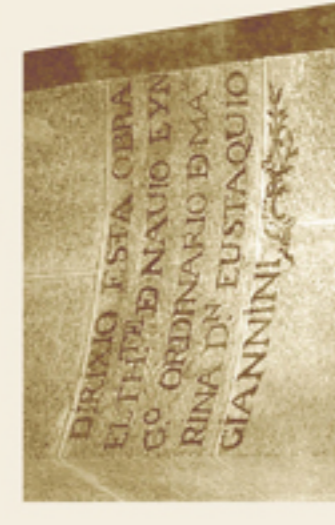 DIRIXIO ESTA OBRA
EL THTE D NAUIO E YN
G.O ORDINARIO D MA
RINA D.N EUSTAQUIO
GIANNINI